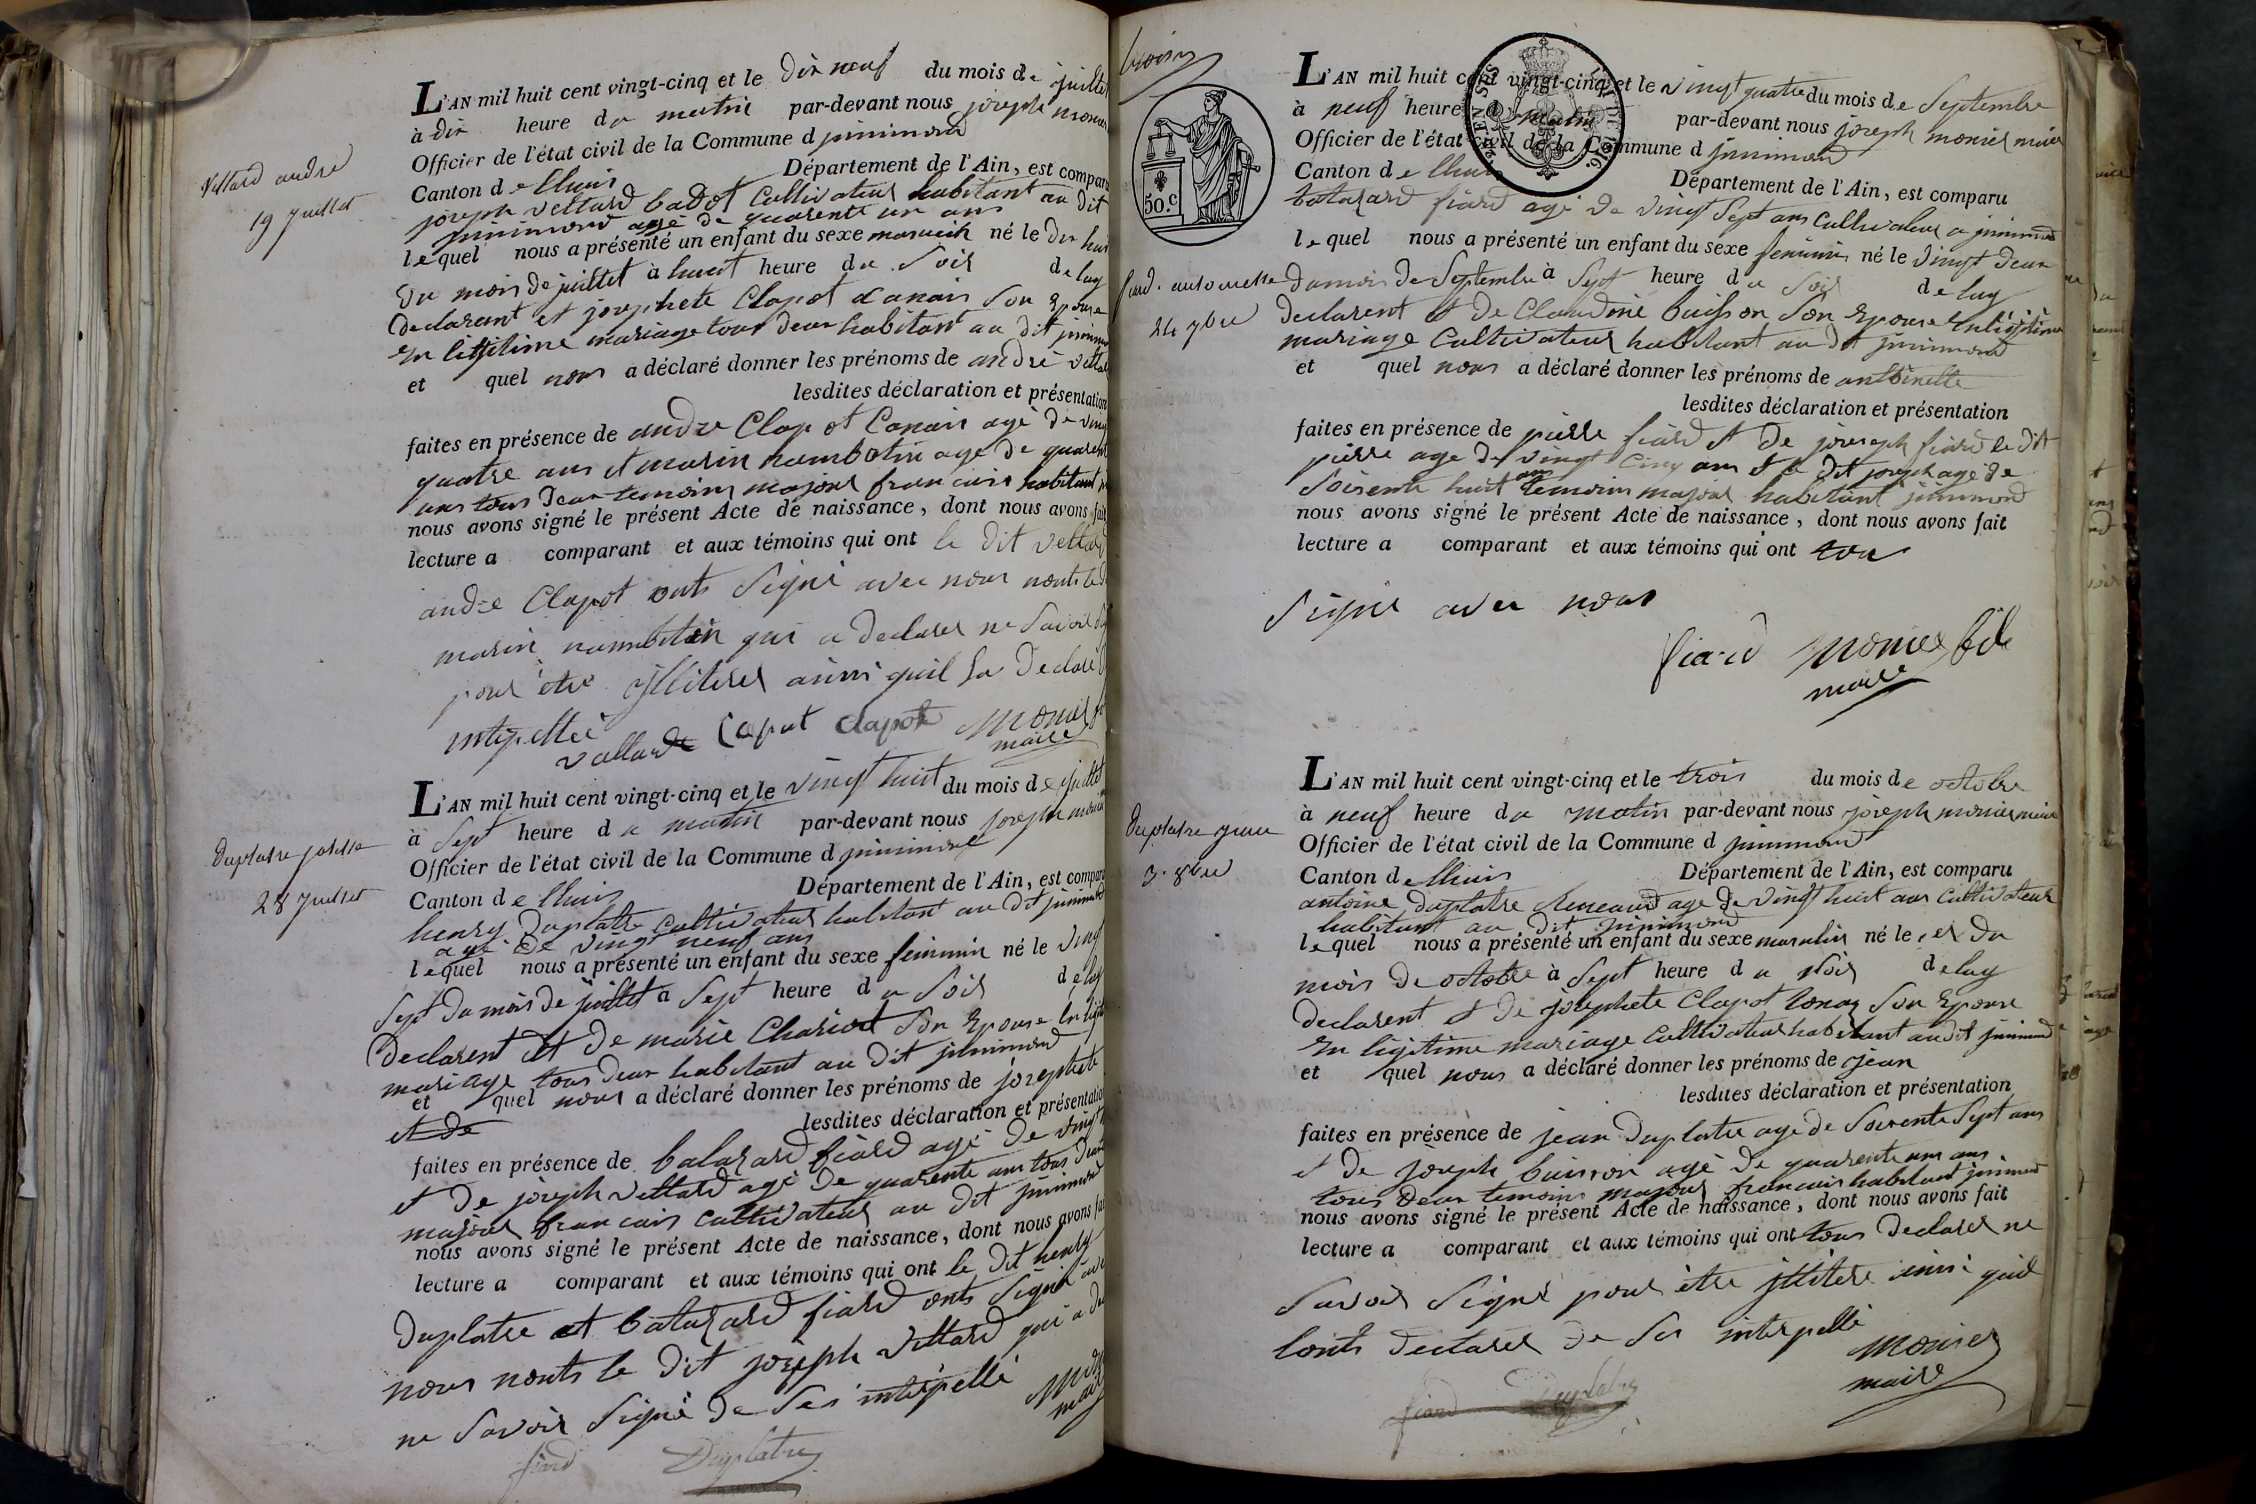 Vettard andré
19 juillet
L'AN mil huit cent vingt-cinq et le dix neuf du mois de juillet
à dix heure du matin par-devant nous joseph monier
Officier de l'état civil de la Commune d jnnimond
Canton de lhuis Département de l'Ain, est comparu
joseph vettard badot cultivateur habitant au dit
jnnimond agé de quarente un ans
lequel nous a présenté un enfant du sexe né le dix huit
du mois de juillet à huit heure du Soir de luy
declarant et josephete Clapot canais Son Epouse
En mariage tous deux habitant au dit
et quel nous a déclaré donner les prénoms de andré
lesdites déclaration et présentation
faites en présence de andre Clapot Canais agé de
quatre ans et marin agé de
ans tous deux temoins majeur francais habitant
nous avons signé le présent Acte de naissance, dont nous avons fait
lecture a comparant et aux témoins qui ont le dit vettard
andre Clapot onts Signé avec nous nonts le
marin qui a declarer ne Savoir
pour être jlliterer ainsi quil la Declaré
interpellé
Clapot Monier
maire
Duplatre josette
28 Juillet
L'AN mil huit cent vingt-cinq et le vingt huit du mois de juillet
à Sept heure du matin par-devant nous joseph
Officier de l'état civil de la Commune d jnnimond
Canton de lhuis Département de l'Ain, est comparu
henry Duplatre cultivateur habitant au dit jnnimond
agé de vingt neuf ans
lequel nous a présenté un enfant du sexe feminin né le vingt
Sept du mois de juillet à Sept heure du Soir de luy
Declarent et de marie Chariot Son Epouse
mariage tous deux habitant au dit jnnimond
et quel nous a déclaré donner les prénoms de josephete
et de
lesdites déclaration et présentation
faites en présence de balazard fiard agé de vingt
et de joseph vettard agé de quarente ans tous deux
majeur francais cultivateur au dit jnnimond
nous avons signé le présent Acte de naissance, dont nous avons fait
lecture a comparant et aux témoins qui ont le dit henry
Duplatre et batazard fiard onts Signé avec
nous nonts le dit joseph vettard qui a
ne Savoir Signé de Ses interpellé
fiard Duplatre
L'AN mil huit cent vingt-cinq et le vingt quatre du mois de Septembre
à neuf heure du matin par-devant nous joseph monier maire
Officier de l'état civil de la Commune d jnnimond
Canton de lhuis Département de l'Ain, est comparu
50.c
batazard fiard agé de vingt Sept ans cultivateur a jnnimond
lequel nous a présenté un enfant du sexe feminin né le vingt deux
fiard antoinette
24 7bre
du mois de Septembre à Sept heure du Soir de luy
declarent et de Claudine buisson Son Epouse
mariage Cultivateur habitant au dit jnnimond
et quel nous a déclaré donner les prénoms de anthoinette
lesdites déclaration et présentation
faites en présence de pierre fiard et de joseph fiard le dit
pierre age de vingt cinq ans et le dit joseph agé de
Soisente huit ans temoins majeur habitant jnnimond
nous avons signé le présent Acte de naissance, dont nous avons fait
lecture a comparant et aux témoins qui ont tou
Signé avec nous
fiard Monier
maire
Duplatre jean
3. 8bre
L'AN mil huit cent vingt-cinq et le trois du mois de octobre
à neuf heure du matin par-devant nous joseph monier maire
Officier de l'état civil de la Commune d jnnimond
Canton de lhuis Département de l'Ain, est comparu
antoine Duplatre agé de vingt huit ans cultivateur
habitant au dit jnnimond
lequel nous a présenté un enfant du sexe masculin né le 1er du
mois de octobre à Sept heure du Soir de luy
declarent et de josephete Clapot Son Epouse
En ligitime mariage cultivateur habitant au dit jnnimond
et quel nous a déclaré donner les prénoms de jean
lesdites déclaration et présentation
faites en présence de jean Duplatre agé de Soisente Sept ans
et de joseph buisson agé de quarente un ans
tous deux temoins majeur francais habitant jnnimond
nous avons signé le présent Acte de naissance, dont nous avons fait
lecture a comparant et aux témoins qui ont tous Declarer ne
Savoir Signé pour être jllitere quil
lonts declarer de Ses interpellé
Monier
maire
fiard Duplatre